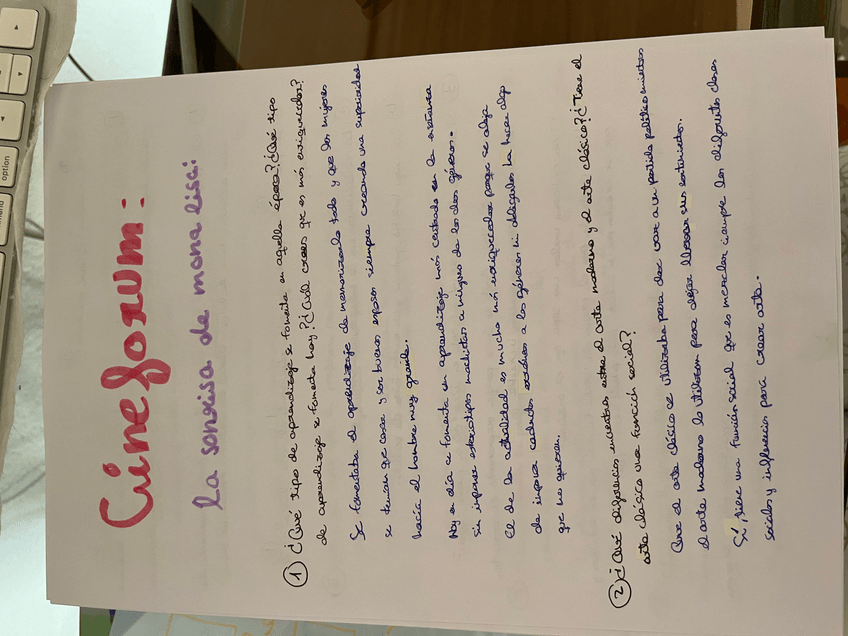 Cineforum:
La sonrisa de mona lisa:
1) ¿Qué tipo de aprendizaje se fomenta en aquella época? ¿Qué tipo
de aprendizaje se fomenta hoy? ¿Cuál crees que es más enriquecedor?
Se fomentaba el aprendizaje de memorizarlo todo y que las mujeres
se tenían que casar y ser buenas esposas siempre creando una superioridad
hacia el hombre muy grande.
Hoy en día se fomenta un aprendizaje más centrado en la enseñanza
sin imponer estereotipos machistas a ninguno de los dos géneros.
El de la actualidad es mucho más enriquecedor porque se aleja
de imponer a los géneros ni obligarlos ha hacer algo
que no quieran.
2) ¿Qué diferencias encuentras entre el arte moderno y el arte clásico? ¿Tiene el
arte clásico una función social?
Que el arte clásico se utilizaba para dar voz a un partido político mientras
el arte moderno lo utilizan para dejar llevar sus sentimientos.
Sí, tiene una función social que es mezclar siempre las diferentes clases
sociales y influencias para crear arte.
option